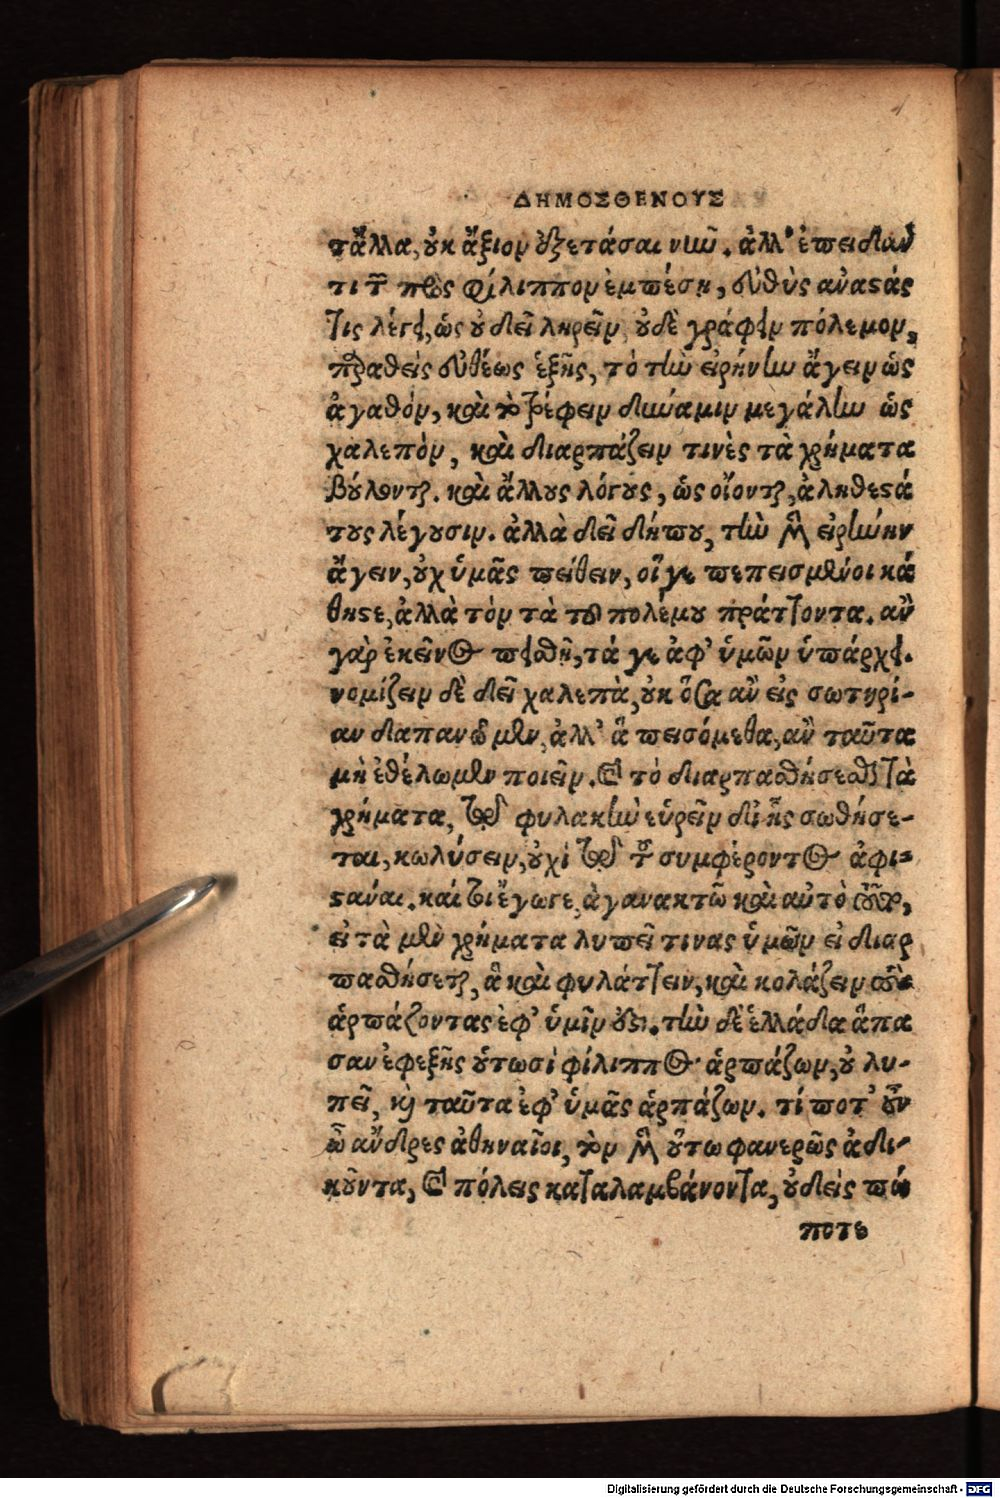 ΔΗΜΟΣΘΕΝΟΥΣ
τἄλλα, οὐκ ἄξιον ἐξετάσαι νῦν. ἀλλ' ἐπειδὰν
τι τῶν πρὸς φίλιππον ἐμπέσῃ, εὐθὺς ἀναστάς
τις λέγει, ὡς οὐ δεῖ ληρεῖν, οὐδὲ γράφειν πόλεμον,
παραθεὶς εὐθέως ἑξῆς, τὸ τὴν εἰρήνην ἄγειν ὡς
ἀγαθὸν, καὶ τὸ τρέφειν δύναμιν μεγάλην ὡς
χαλεπὸν, καὶ διαρπάζειν τινὲς τὰ χρήματα
βούλονται. καὶ ἄλλους λόγους, ὡς οἴονται, ἀληθεστά
τους λέγουσιν. ἀλλὰ δεῖ δήπου, τὴν μὲν εἰρήνην
ἄγειν, οὐχ ὑμᾶς πείθειν, οἵ γε πεπεισμένοι κά
θησθε, ἀλλὰ τὸν τὰ τοῦ πολέμου πράττοντα. ἂν
γὰρ ἐκεῖνος πεισθῇ, τά γε ἀφ' ὑμῶν ὑπάρχει.
νομίζειν δὲ δεῖ χαλεπὰ, οὐκ ὅσα ἂν εἰς σωτηρί-
αν δαπανῶμεν, ἀλλ' ἃ πεισόμεθα, ἂν ταῦτα
μὴ ἐθέλωμεν ποιεῖν. καὶ τὸ διαρπασθήσεσθαι τὰ
χρήματα, τῷ φυλακὴν εὑρεῖν δι' ἧς σωθήσε-
ται, κωλύσειν, οὐχὶ τῷ τοῦ συμφέροντος ἀφι-
στάναι. καίτοι ἔγωγε, ἀγανακτῶ καὶ αὐτὸ τοῦτο,
εἰ τὰ μὲν χρήματα λυπεῖ τινας ὑμῶν εἰ διαρ
πασθήσεται, ἃ καὶ φυλάττειν, καὶ κολάζειν τοὺς
ἁρπάζοντας ἐφ' ὑμῖν ἐστι. τὴν δὲ ἑλλάδα ἅπα
σαν ἐφεξῆς οὑτωσὶ φίλιππος ἁρπάζων, οὐ λυ-
πεῖ, καὶ ταῦτα ἐφ' ὑμᾶς ἁρπάζων. τί ποτ' οὖν
ὦ ἄνδρες ἀθηναῖοι, τὸν μὲν οὕτω φανερῶς ἀδι-
κοῦντα, καὶ πόλεις καταλαμβάνοντα, οὐδεὶς πώ
ποτε
Digitalisierung gefördert durch die Deutsche Forschungsgemeinschaft - DFG